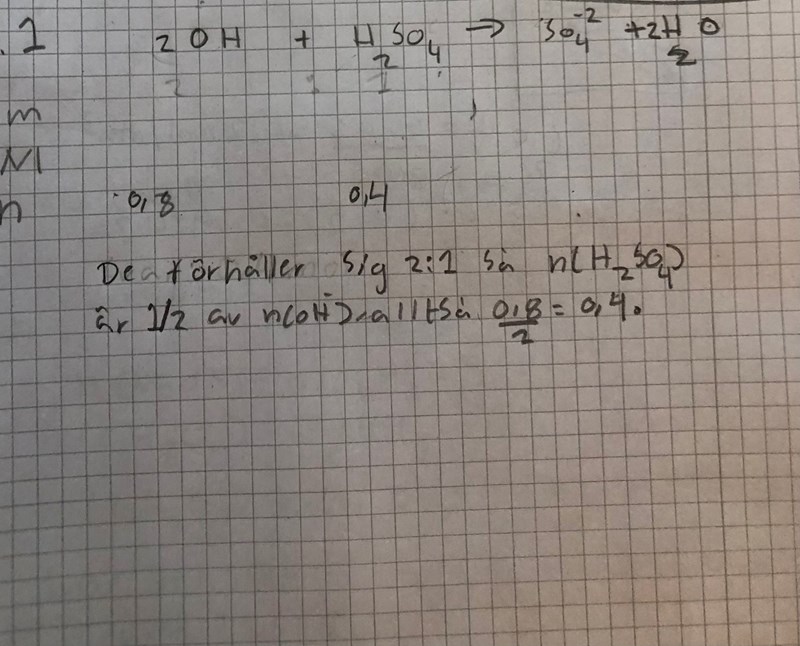 1 2 OH + H2SO4 → SO4^-2 + 2H2O
m
M
n 0,8 0,4
De förhåller sig 2:1 så n(H2SO4)
är 1/2 av n(OH-) alltså 0,8/2 = 0,4.